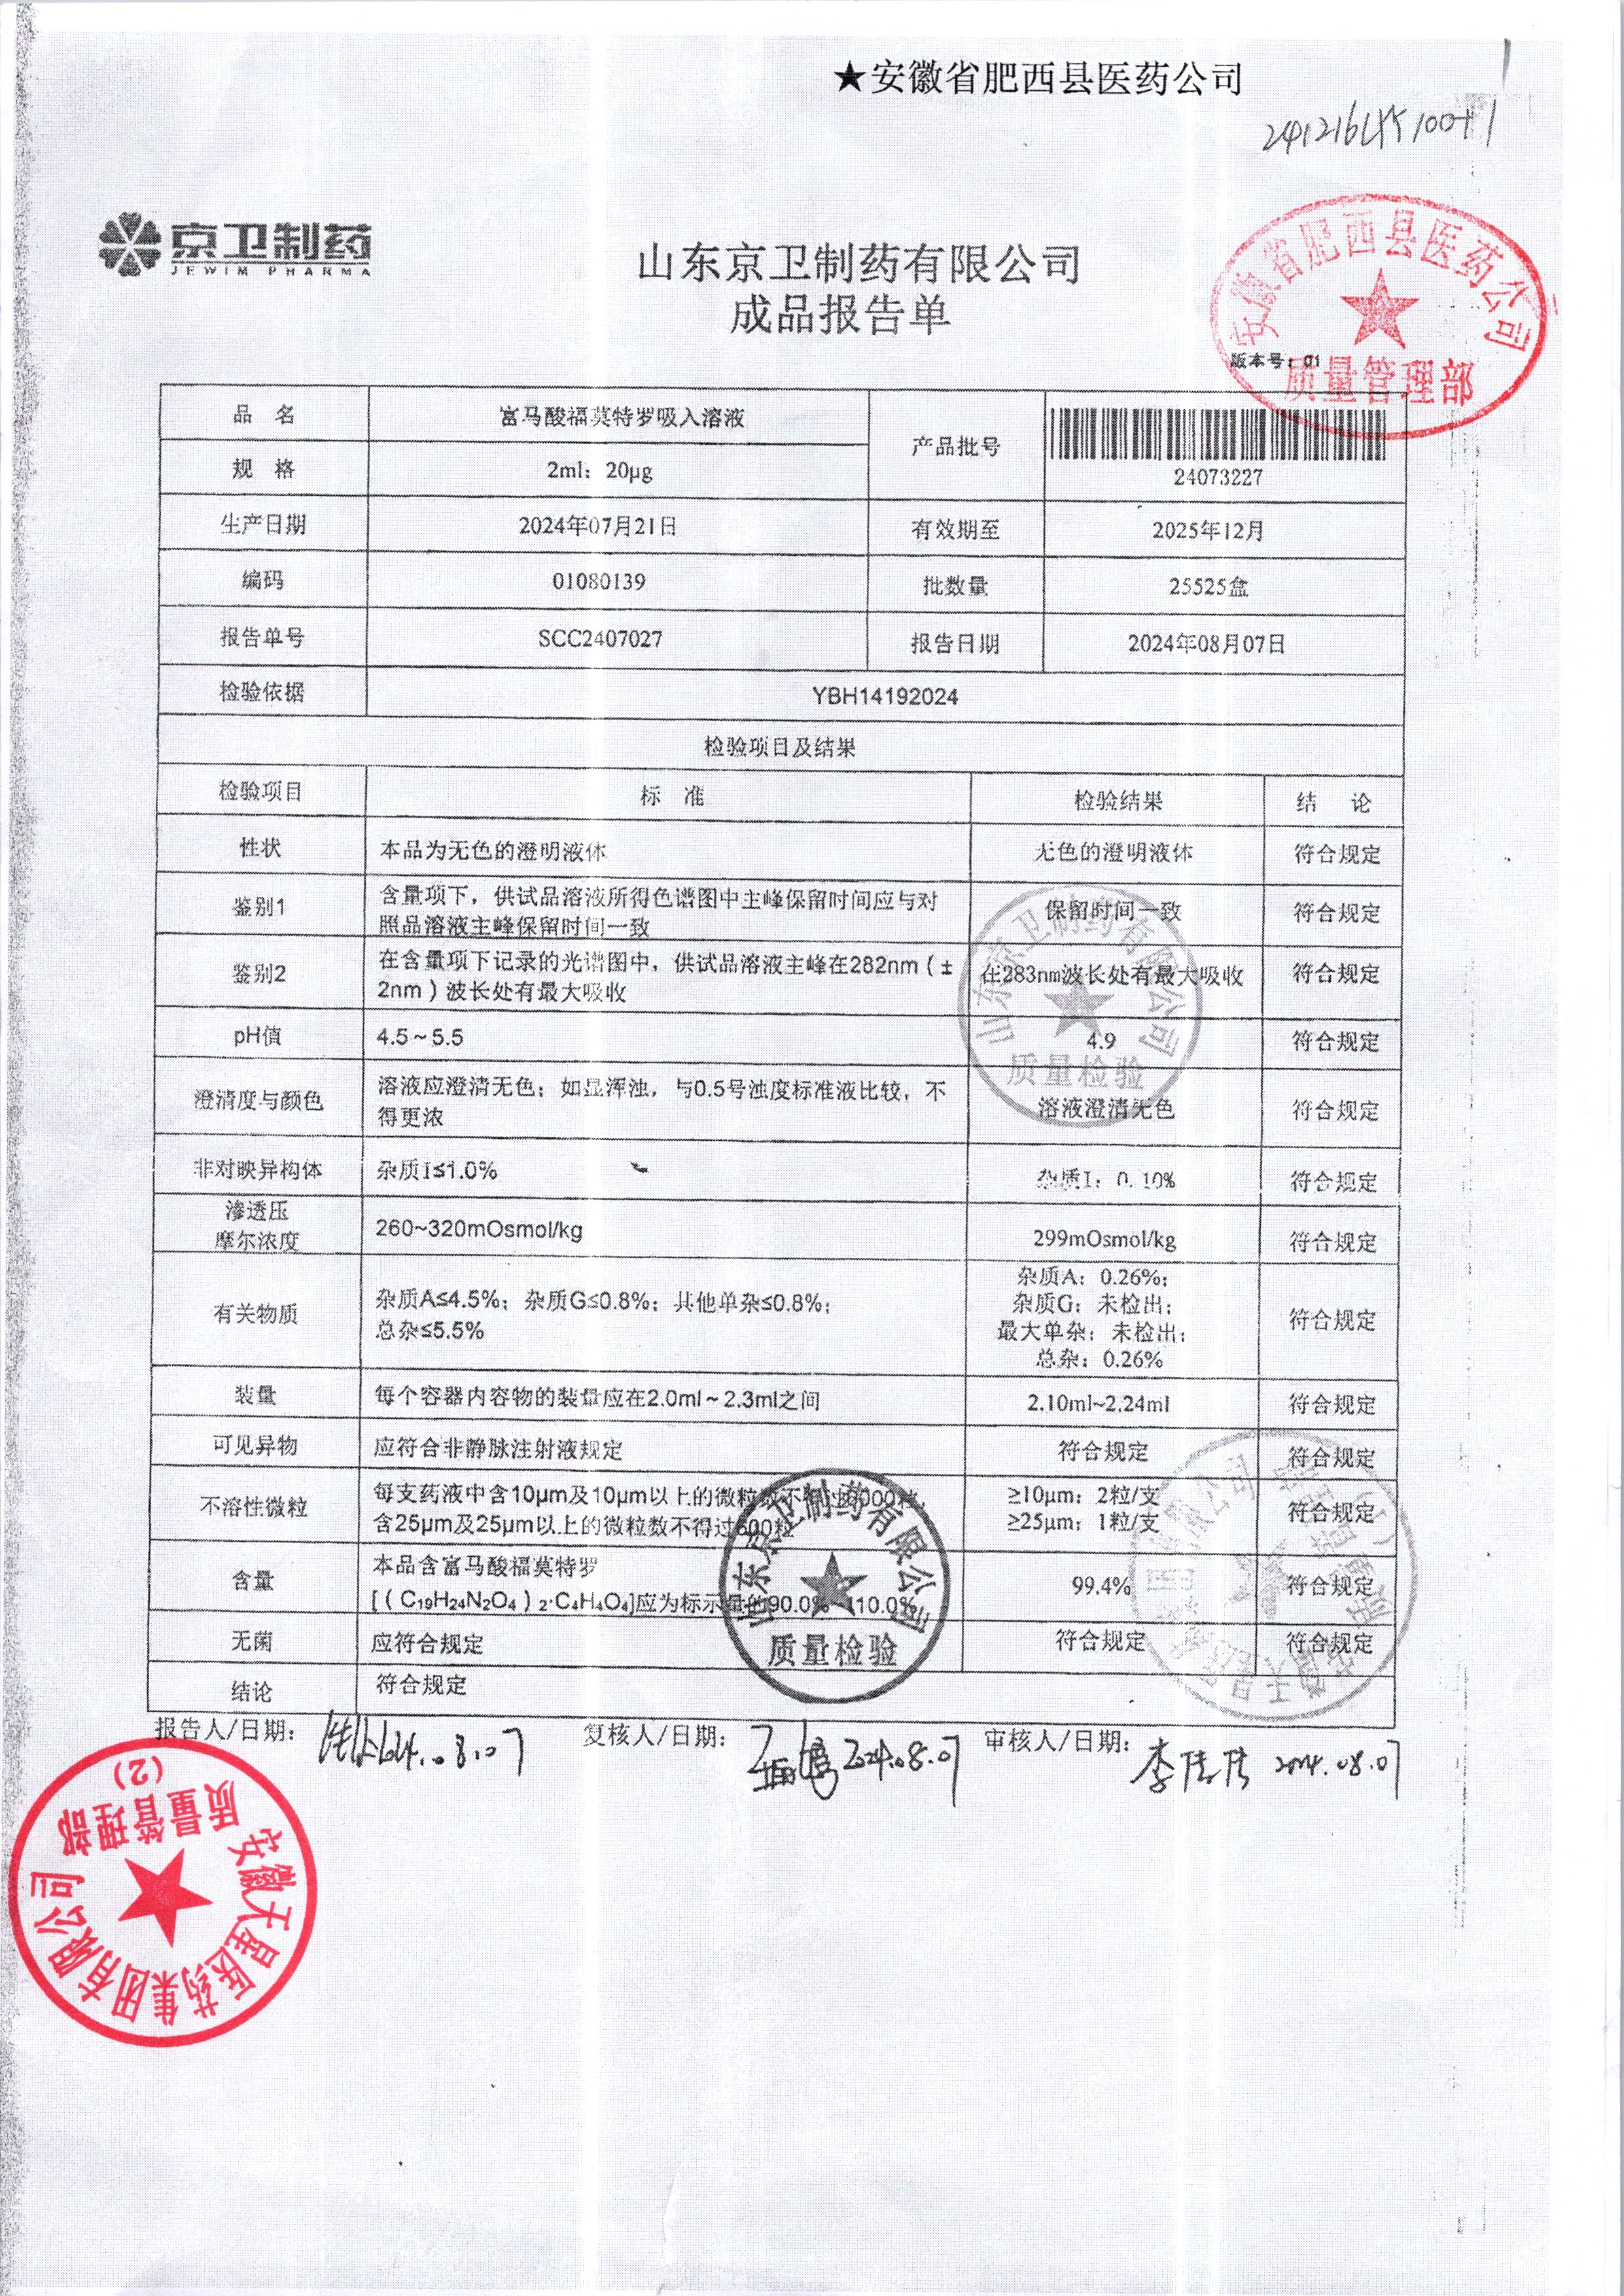 ★安徽省肥西县医药公司
京卫制药
JEWIM PHARMA
山东京卫制药有限公司
成品报告单
安徽省肥西县医药公司
质量管理部
版本号：01
品 名 富马酸福莫特罗吸入溶液 产品批号 24073227
规 格 2ml：20μg
生产日期 2024年07月21日 有效期至 2025年12月
编码 01080139 批数量 25525盒
报告单号 SCC2407027 报告日期 2024年08月07日
检验依据 YBH14192024
检验项目及结果
检验项目 标 准 检验结果 结 论
性状 本品为无色的澄明液体 无色的澄明液体 符合规定
鉴别1 含量项下，供试品溶液所得色谱图中主峰保留时间应与对
照品溶液主峰保留时间一致 保留时间一致 符合规定
鉴别2 在含量项下记录的光谱图中，供试品溶液主峰在282nm（±
2nm）波长处有最大吸收 在283nm波长处有最大吸收 符合规定
pH值 4.5~5.5 4.9 符合规定
澄清度与颜色 溶液应澄清无色；如显浑浊，与0.5号浊度标准液比较，不
得更浓 溶液澄清无色 符合规定
山东京卫制药有限公司
质量检验
非对映异构体 杂质I≤1.0% 杂质I：0.10% 符合规定
渗透压
摩尔浓度 260~320mOsmol/kg 299mOsmol/kg 符合规定
有关物质 杂质A≤4.5%；杂质G≤0.8%；其他单杂≤0.8%；
总杂≤5.5%
杂质A：0.26%；
杂质G：未检出；
最大单杂：未检出；
总杂：0.26%
符合规定
装量 每个容器内容物的装量应在2.0ml~2.3ml之间 2.10ml~2.24ml 符合规定
可见异物 应符合非静脉注射液规定 符合规定 符合规定
不溶性微粒 每支药液中含10μm及10μm以上的微粒数不得过6000粒，
含25μm及25μm以上的微粒数不得过600粒
≥10μm：2粒/支
≥25μm：1粒/支
符合规定
含量 本品含富马酸福莫特罗
[（C₁₉H₂₄N₂O₄）₂·C₄H₄O₄]应为标示量的90.0%~110.0% 99.4% 符合规定
无菌 应符合规定 符合规定 符合规定
结论 符合规定
山东京卫制药有限公司
质量检验
报告人/日期： 2024.08.07 复核人/日期： 2024.08.07 审核人/日期： 2024.08.07
安徽天星医药集团有限公司
质量管理部
(2)